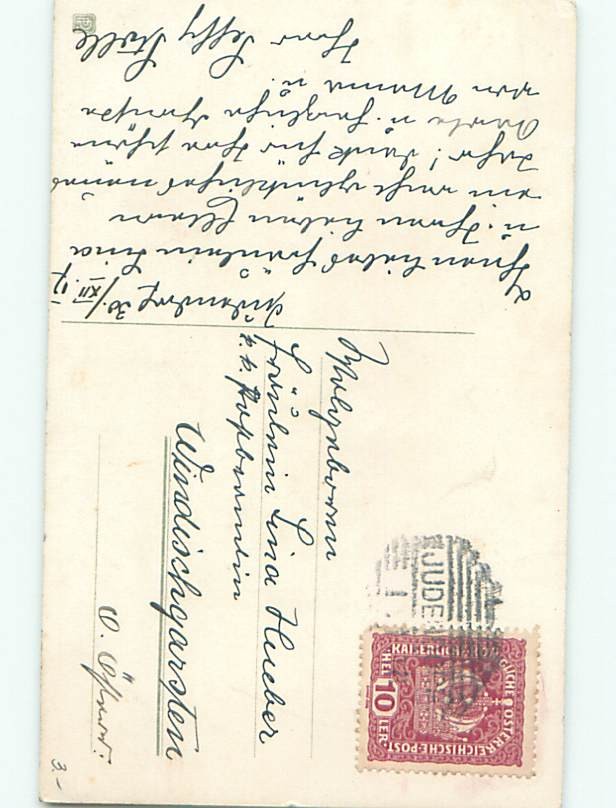 Judenburg 30./XII. 17
Ihnen liebes Fräulein Lina
u. Ihren lieben Eltern
ein recht glückliches neues
Jahr! Dank für Ihre schöne
Karte u. herzliche Grüße
von Mama u.
Ihrer Steffy
Wohlgeboren
Fräulein Lina Hueber
k. k. Postbeamtin
Windischgarsten
O. Österr:
JUDEN
1
KAISERLICHE KÖNIGLICHE ÖSTERREICHISCHE POST
HEL 10 LER
3.-